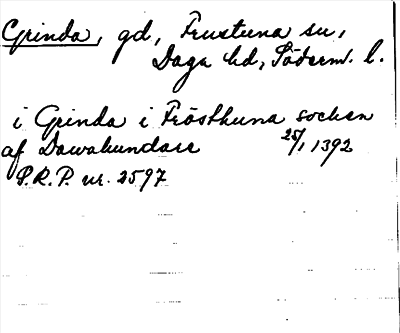 Grinda, gd, Frustuna sn,
Daga hd, Söderm. l.
i Grinda i Frösthuna socken
af Dawahundare 25/1 1392
S.R.P. nr. 2597